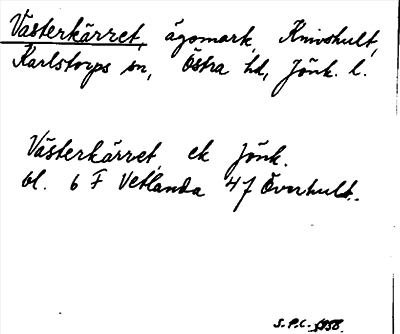 Västerkärret, ägomark, Knivshult,
Karlstorps sn, Östra hd, Jönk. l.
Västerkärret, ek Jönk.
bl. 6 F Vetlanda 4 f Överhult.
S.P.C. 1958.